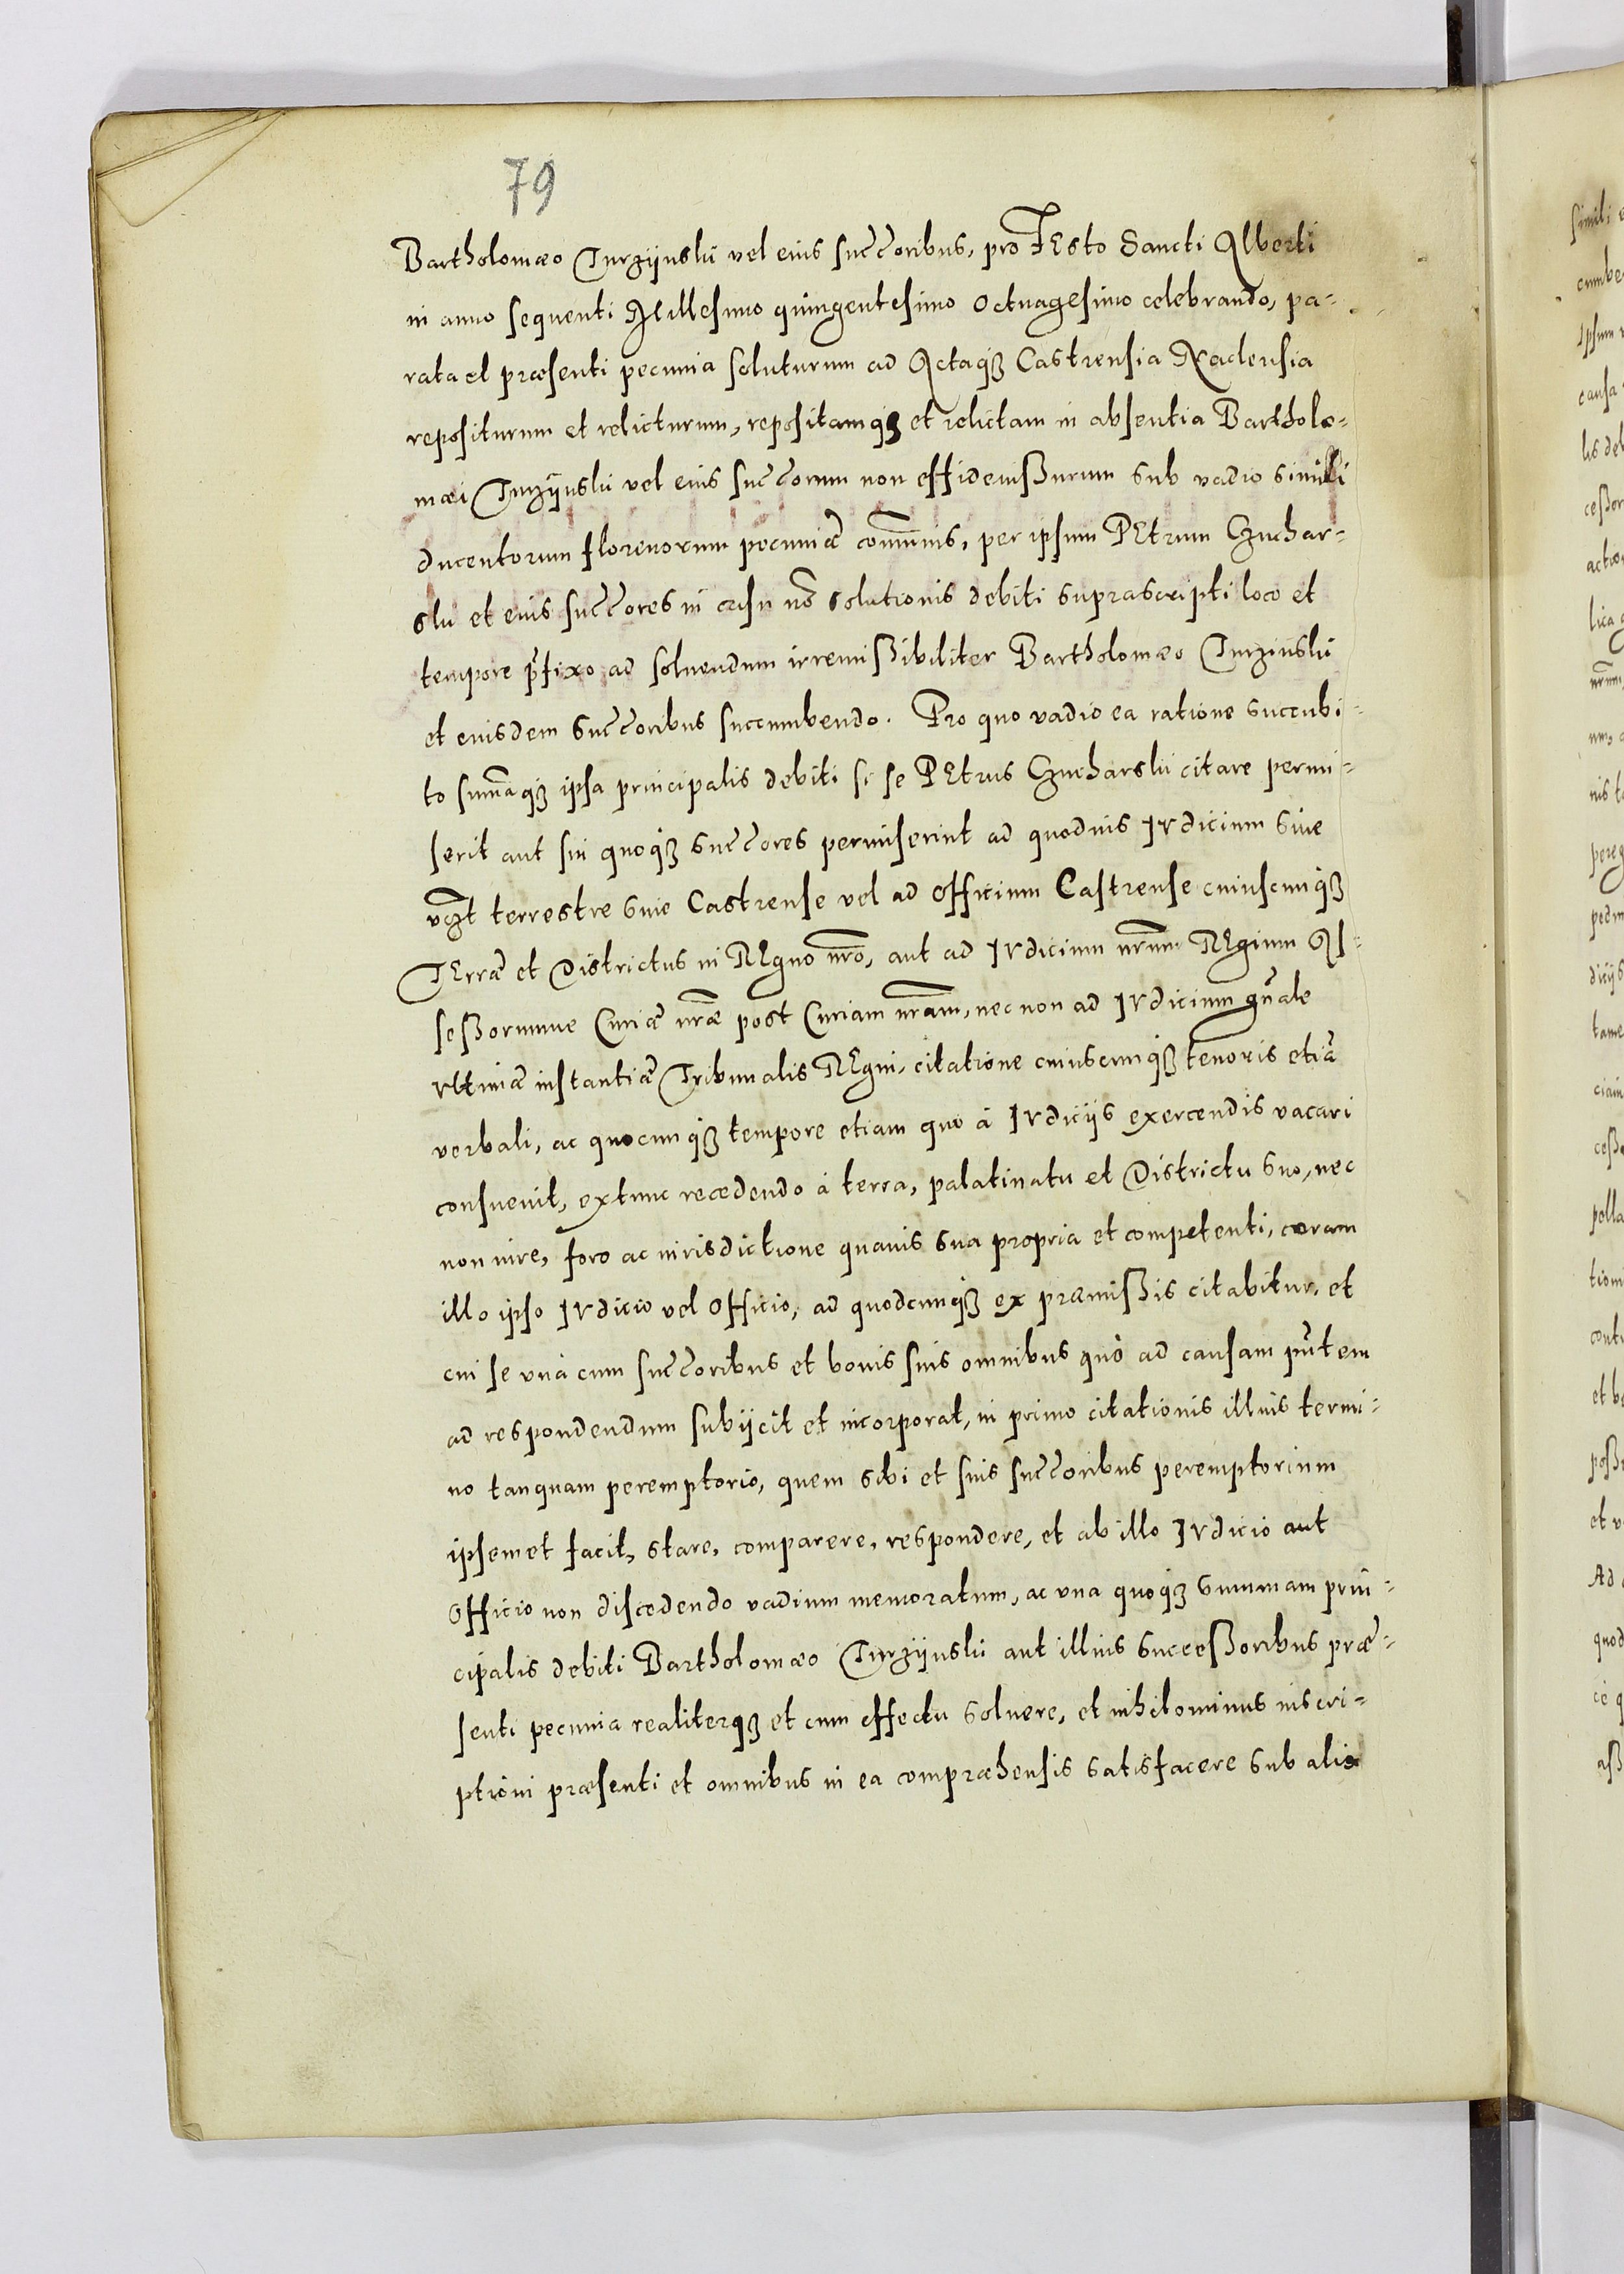 79
Bartholomæo Turzijnski vel eius succoribus, pro Festo Sancti Alberti
in anno sequenti Millesimo quingentesimo octuagesimo celebrando, pa-
rata et præsenti pecunia soluturum ad Actaqȝ Castrensia Naclensia
repositurum et relicturum, repositamqȝ et relictam in absentia Bartholo-
mæi Turzijnski vel eius succorum non effidemissurum sub vadio simili
ducentorum florenorum pecuniæ com̄unis, per ipsum Petrum Czuchar-
ski et eius succores in casu nō solutionis debiti suprascripti loco et
tempore p̄fixo ad soluendum irremissibiliter Bartholomæo Turzinski
et eiusdem succoribus succumbendo. Pro quo vadio ea ratione succubi-
to sum̄aqȝ ipsa principalis debiti si se Petrus Czucharski citare permi-
serit aut sui quoqȝ succores permiserint ad quoduis Iudicium siue
vȝt terrestre siue Castrense vel ad Officium Castrense cuiuscunqȝ
Terræ et Districtus in Regno nr̄o, aut ad Iudicium nr̄um Regium As-
sessorumue Curiæ nr̄æ post Curiam nr̄am, nec non ad Iudicium gn̄ale
vltimæ instantiæ Tribunalis Regni, citatione cuiuscunqȝ tenoris etiā
verbali, ac quocunqȝ tempore etiam quo à Iudicijs exercendis vacari
consueuit, extunc recedendo à terra, palatinatu et Districtu suo, nec
non iure, foro ac iurisdictione quauis sua propria et competenti, coram
illo ipso Iudicio vel Officio, ad quodcunqȝ ex præmissis citabitur, et
cui se vnà cum succoribus et bonis suis omnibus quò ad causam pn̄tem
ad respondendum subijcit et incorporat, in primo citationis illius termi-
no tanquam peremptorio, quem sibi et suis succoribus peremptorium
ipsemet facit, stare, comparere, respondere, et ab illo Iudicio aut
Officio non discedendo vadium memoratum, ac vna quoqȝ summam prin-
cipalis debiti Bartholomæo Turzijnski aut illius successoribus præ-
senti pecunia realiterqȝ et cum effectu soluere, et nihilominus inscri-
ptioni præsenti et omnibus in ea compræhensis satisfacere sub alio